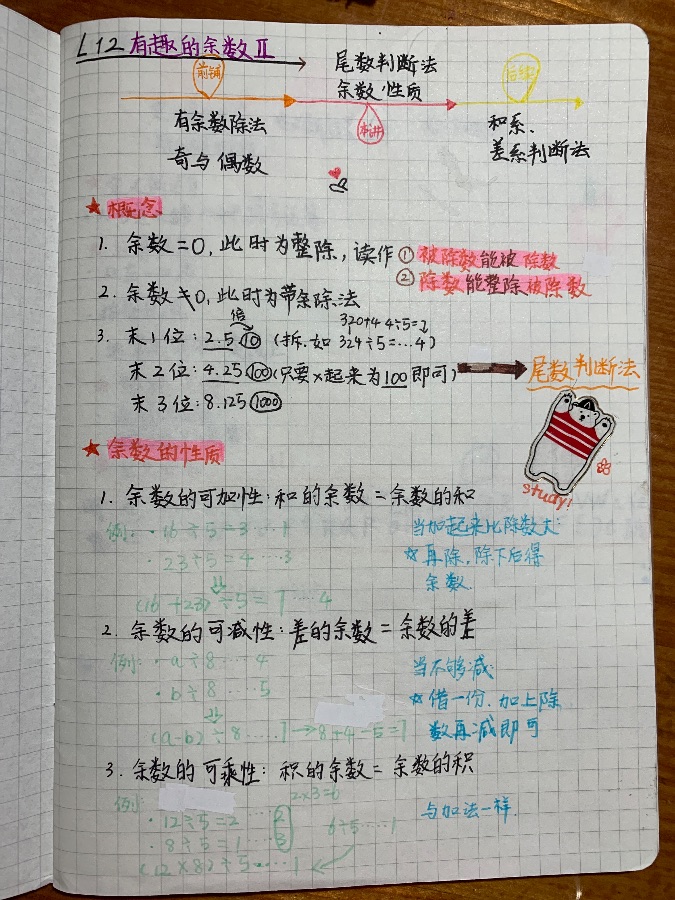 L12 有趣的余数Ⅱ
前铺
尾数判断法
余数性质
后续
有余数除法
奇与偶数
本讲
和系、
差系判断法
★概念
1. 余数=0,此时为整除,读作①被除数能被除数
②除数能整除被除数
2. 余数≠0,此时为带余除法
倍
320+4 4÷5=
3. 末1位:2.5.⑩ (拆.如 324÷5=…4)
末2位:4.25.(100)(只要×起来为100即可)
尾数判断法
末3位:8.125(1000)
★余数的性质
study!
1. 余数的可加性:和的余数=余数的和
例: ·16÷5=3…1
当加起来比除数大:
·23÷5=4…3
☆再除,除下后得
余数.
(16+23)÷5=7……4
2. 余数的可减性:差的余数=余数的差
例: ·a÷8……4
当不够减
·b÷8……5
☆借一份.加上除
(a-b)÷8……7→8+4-5=7
数再减即可
3. 余数的可乘性:积的余数=余数的积
例:
2×3=6
·12÷5=2…2
6÷5……1
与加法一样.
·8÷5=1…3
(12×8)÷5……1